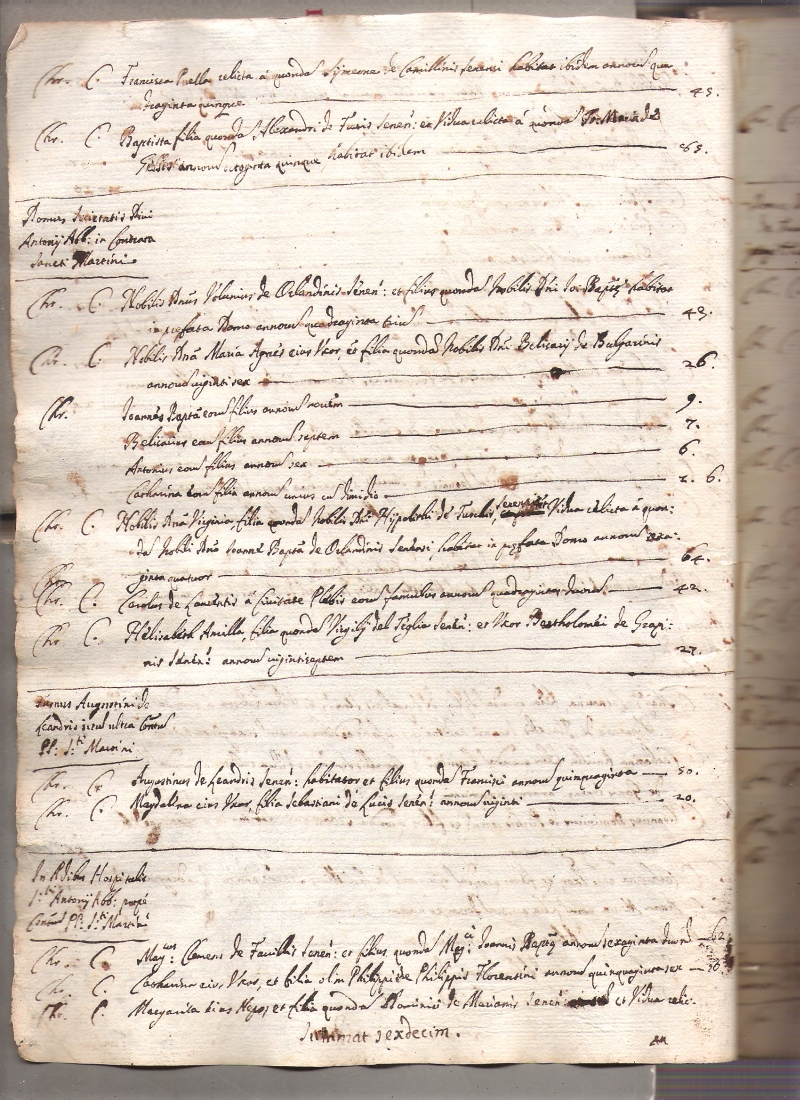 Chr. C. Francisca Puella relicta à quondam Symeone de Camillinis senensi habitat ibidem annorum qua
draginta quinque 45.
Chr. C. Baptista filia quondam Alexandri de Turis Senen: et Vidua relicta à quondam Jo: Maria de
annorum octoginta quinque habitat ibidem 85.
Domus Societatis Divi
Antonij Abb: in Contrata
Sancti Martini.
Chr. C. Nobilis Dnus Volunius de Orlandinis Senen: et filius quondam Nobilis Dni Joi Baptae habitat
in prefata Domo annorum quadraginta trium 43.
Chr. C. Nobilis Dna Maria Agnes eius Uxor, et filia quondam Nobilis Dni Belisarij de Bulgarinis
annorum viginti sex 26.
Chr. Joannes Bapta eorum filius annorum novem 9.
Belisarius eorum filius annorum septem 7.
Antonius eorum filius annorum sex 6.
Catharina eorum filia annorum unius cum dimidio 1. 6.
Chr. C. Nobilis Dna Virginia filia quondam Nobilis Dni Hippoliti de Vidua relicta à quon:
dam Nobili Dno Joanne Bapta de Orlandinis Senensi, habitat in prefata Domo annorum sexa:
ginta quatuor 64.
Chr. C. Carolus de Laurentis à Civitate Plebis eorum famulus annorum quadraginta duorum 42.
Chr. C. Helisabeth Ancilla, filia quondam Virgilij del Teglia Senen: et Uxor Bartholomei de Grapi:
nis Senen: annorum vigintiseptem 27.
Domus Augustini de
Leandris ultra Contra
PP: Sti Martini
Chr. C. Augustinus de Leandris Senen: habitator et filius quondam Francisci annorum quinquaginta 50.
Chr. C. Magdalena eius Uxor, filia Sebastiani de Lucis Senen: annorum viginti 20.
In Aedibus Hospitalis
Sti Antonij Abb: prope
Contra PP: Sti Martini
Chr. C. Mag:cus Clemens de Senen: et filius quondam Mag:ci Joannis Baptae annorum sexaginta duorum 62.
Chr. C. Catharina eius Uxor, et filia olim Philippi de Philippis Florentini annorum quinquaginta sex 56.
Chr. C. Margarita eius Nepos, et filia quondam Dominici de Marianis Senen: et Vidua relic-
Summat sexdecim.